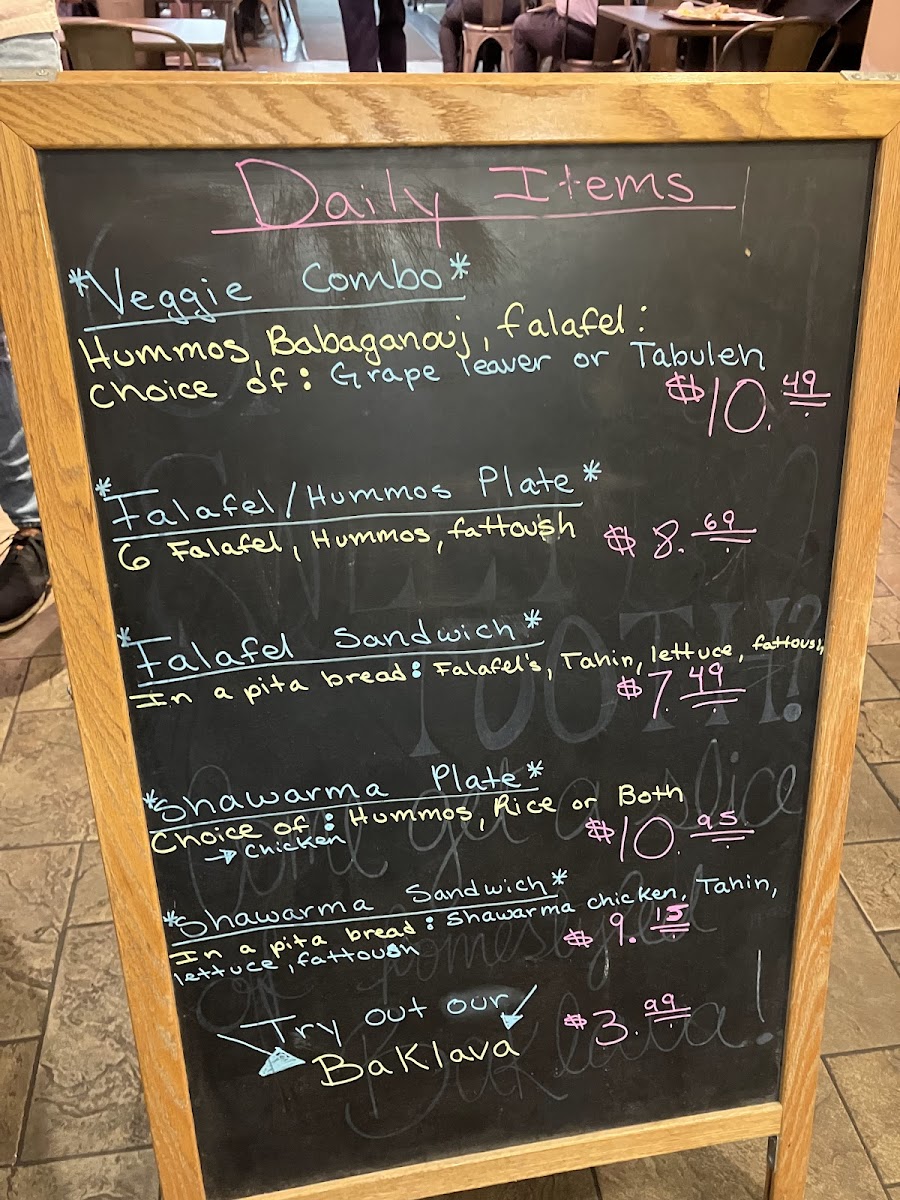 Daily Items
*Veggie Combo*
Hummos, Babaganouj, falafel:
Choice of: Grape leaver or Tabuleh
$10.49
*Falafel/Hummos Plate*
6 Falafel, Hummos, fattoush $8.69
*Falafel Sandwich*
In a pita bread: Falafel's, Tahin, lettuce, fattoush
$7.49
*Shawarma Plate*
Choice of: Hummos, Rice or Both
→ Chicken $10.95
*Shawarma Sandwich*
In a pita bread: Shawarma chicken, Tahin,
lettuce, fattoush $9.15
Try out our
Baklava $3.99
TOOTH?
Come get a slice
of homestyled
Baklava!